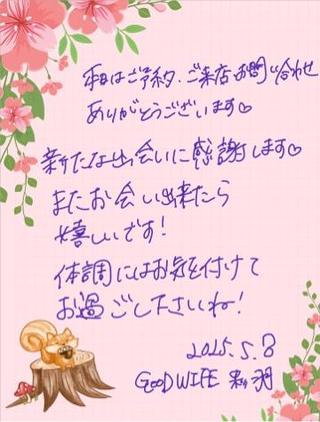 本日はご予約、ご来店お問い合わせ
ありがとうございます♡
新たな出会いに感謝します♡
またお会い出来たら
嬉しいです!
体調にはお気を付けて
お過ごし下さいね!
2025.5.8
GOOD WIFE